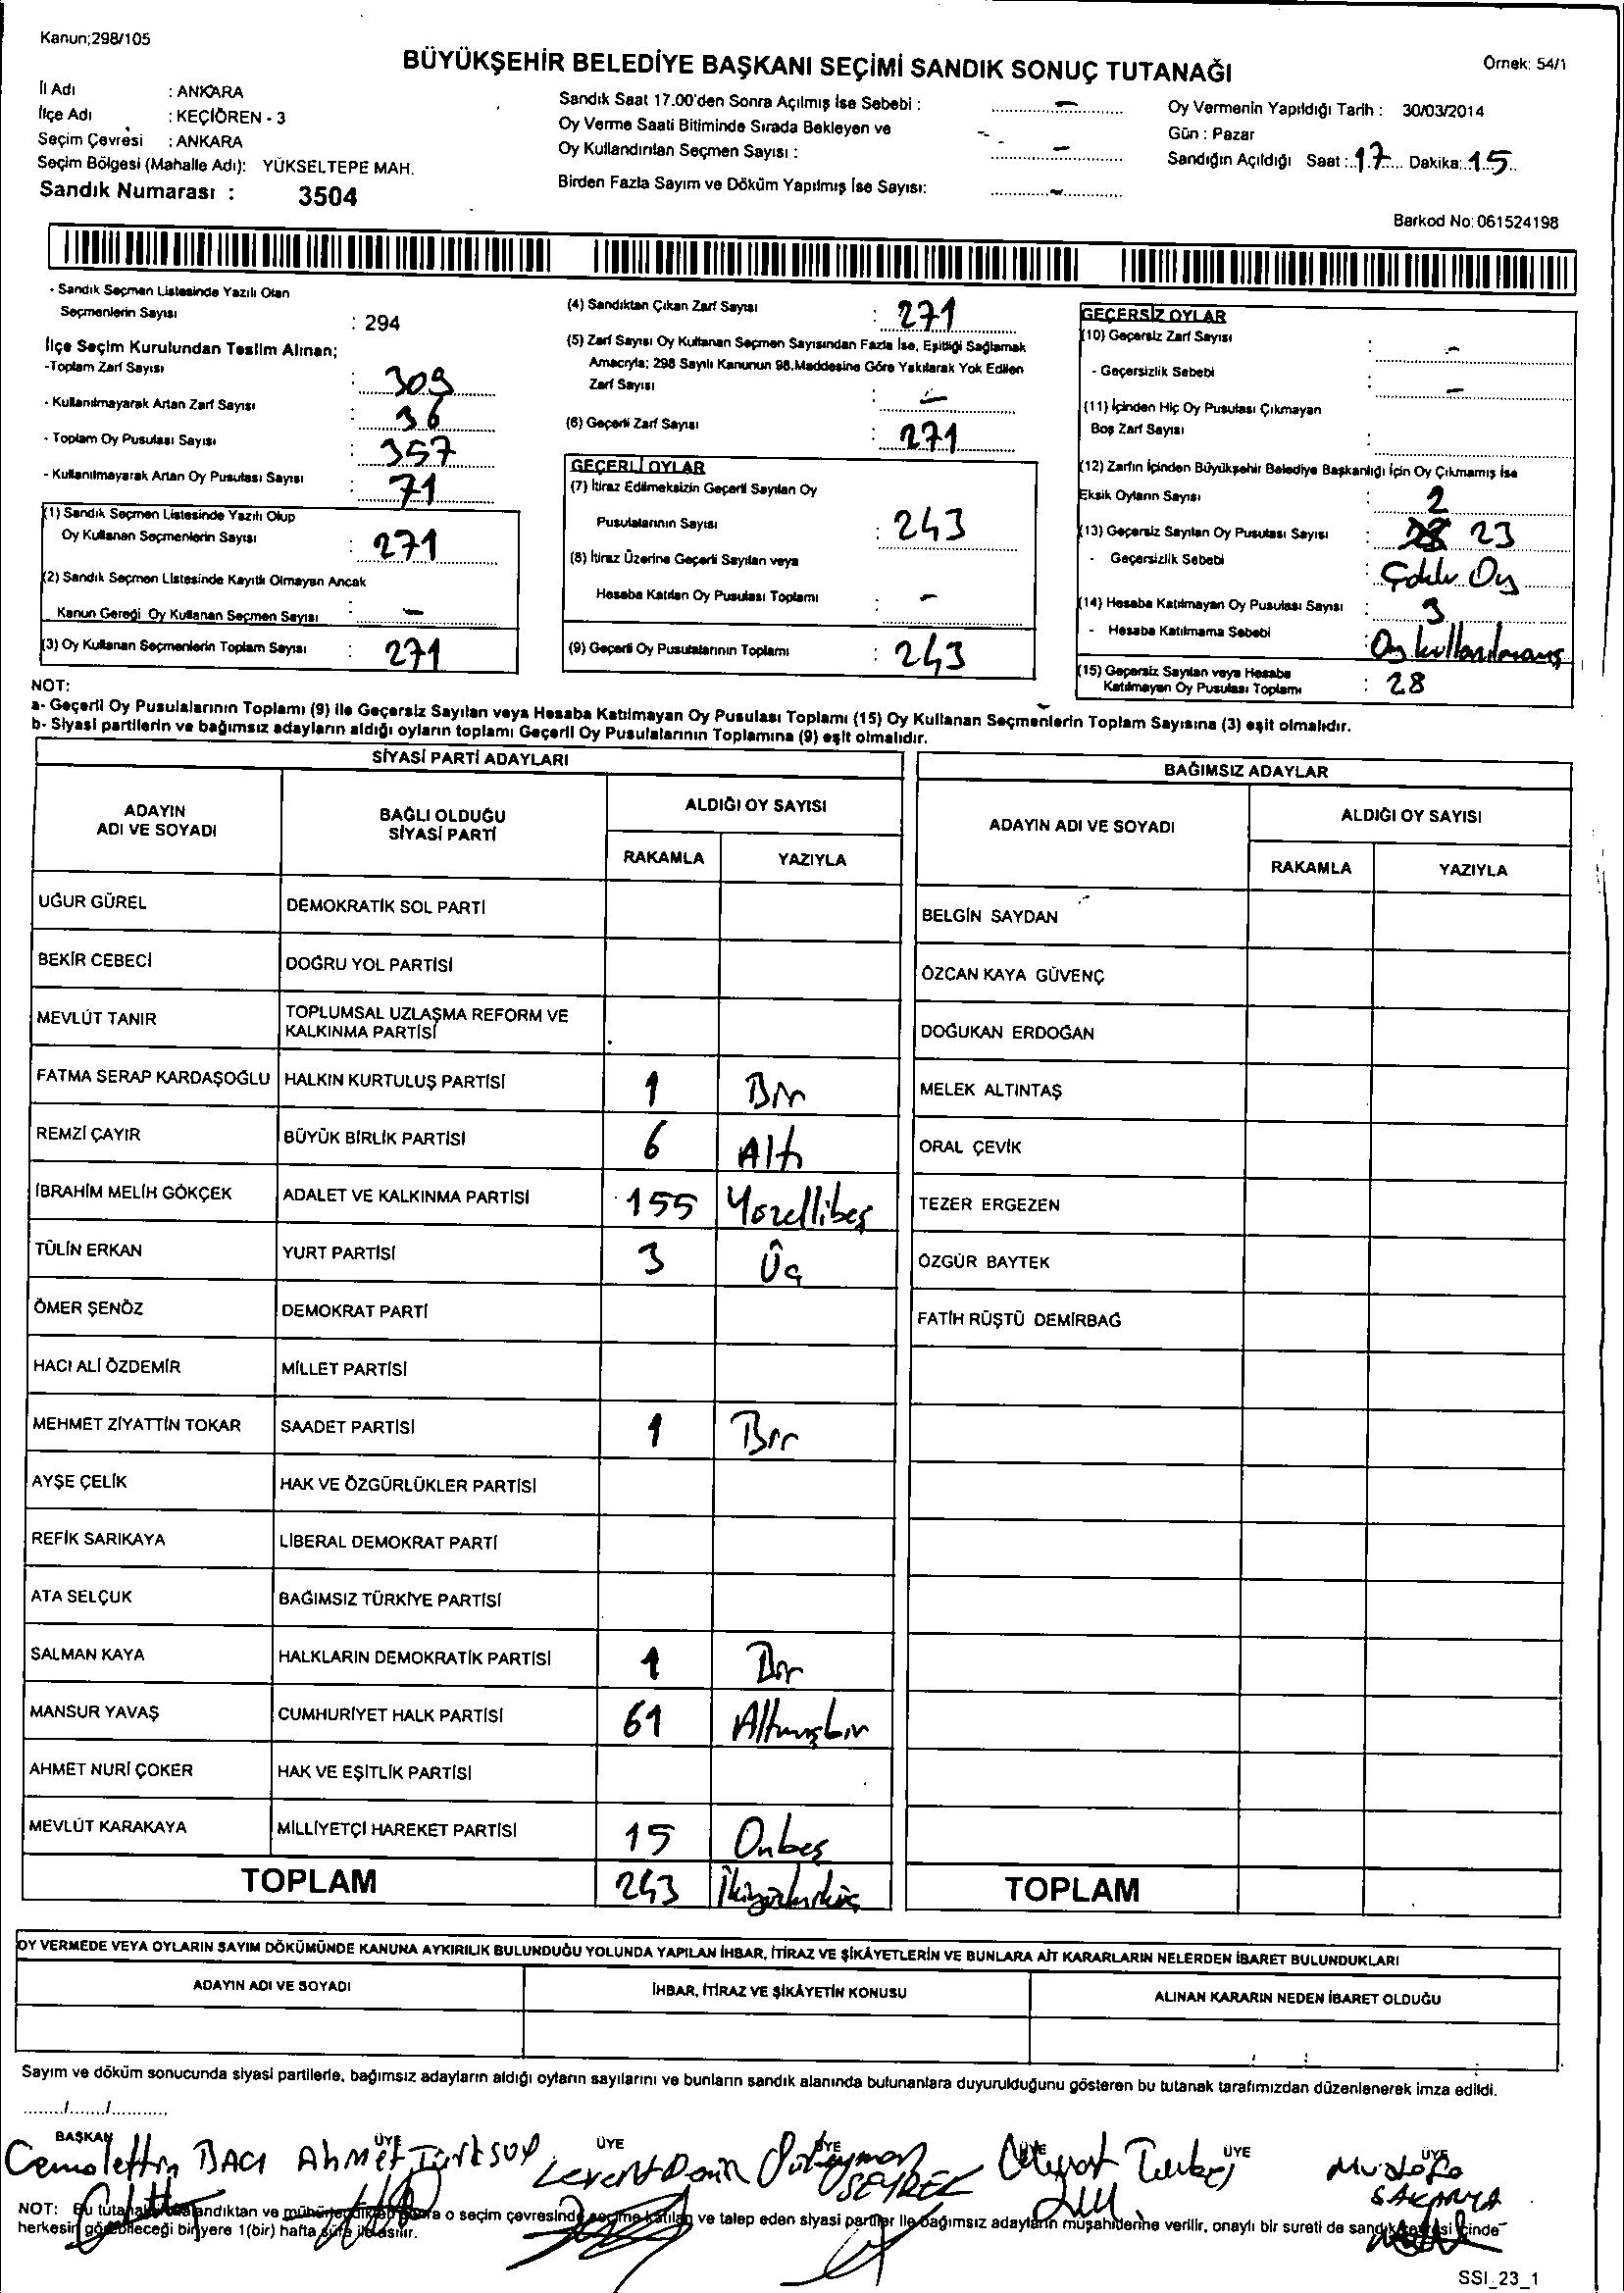 Kanun;298/105
BÜYÜKŞEHİR BELEDİYE BAŞKANI SEÇİMİ SANDIK SONUÇ TUTANAĞI
Örnek: 54/1
İl Adı : ANKARA
İlçe Adı : KEÇİÖREN - 3
Seçim Çevresi : ANKARA
Seçim Bölgesi (Mahalle Adı): YÜKSELTEPE MAH.
Sandık Numarası : 3504
Sandık Saat 17.00'den Sonra Açılmış İse Sebebi : –
Oy Verme Saati Bitiminde Sırada Bekleyen ve
Oy Kullandırılan Seçmen Sayısı : –
Birden Fazla Sayım ve Döküm Yapılmış İse Sayısı: –
Oy Vermenin Yapıldığı Tarih : 30/03/2014
Gün : Pazar
Sandığın Açıldığı Saat : 17 Dakika: 15
Barkod No: 061524198
- Sandık Seçmen Listesinde Yazılı Olan
Seçmenlerin Sayısı : 294
İlçe Seçim Kurulundan Teslim Alınan;
-Toplam Zarf Sayısı : 309
- Kullanılmayarak Artan Zarf Sayısı : 36
- Toplam Oy Pusulası Sayısı : 357
- Kullanılmayarak Artan Oy Pusulası Sayısı : 71
(1) Sandık Seçmen Listesinde Yazılı Olup
Oy Kullanan Seçmenlerin Sayısı : 271
(2) Sandık Seçmen Listesinde Kayıtlı Olmayan Ancak
Kanun Gereği Oy Kullanan Seçmen Sayısı : –
(3) Oy Kullanan Seçmenlerin Toplam Sayısı : 271
(4) Sandıktan Çıkan Zarf Sayısı : 271
(5) Zarf Sayısı Oy Kullanan Seçmen Sayısından Fazla İse, Eşitliği Sağlamak
Amacıyla; 298 Sayılı Kanunun 98.Maddesine Göre Yakılarak Yok Edilen
Zarf Sayısı : –
(6) Geçerli Zarf Sayısı : 271
GEÇERLİ OYLAR
(7) İtiraz Edilmeksizin Geçerli Sayılan Oy
Pusulalarının Sayısı : 243
(8) İtiraz Üzerine Geçerli Sayılan veya
Hesaba Katılan Oy Pusulası Toplamı : –
(9) Geçerli Oy Pusulalarının Toplamı : 243
GEÇERSİZ OYLAR
(10) Geçersiz Zarf Sayısı : –
- Geçersizlik Sebebi : –
(11) İçinden Hiç Oy Pusulası Çıkmayan
Boş Zarf Sayısı :
(12) Zarfın İçinden Büyükşehir Belediye Başkanlığı İçin Oy Çıkmamış İse
Eksik Oyların Sayısı : 2
(13) Geçersiz Sayılan Oy Pusulası Sayısı : 23
- Geçersizlik Sebebi : Çoklu Oy
(14) Hesaba Katılmayan Oy Pusulası Sayısı : 3
- Hesaba Katılmama Sebebi : Oy kullanılmamış
(15) Geçersiz Sayılan veya Hesaba
Katılmayan Oy Pusulası Toplamı : 28
NOT:
a- Geçerli Oy Pusulalarının Toplamı (9) ile Geçersiz Sayılan veya Hesaba Katılmayan Oy Pusulası Toplamı (15) Oy Kullanan Seçmenlerin Toplam Sayısına (3) eşit olmalıdır.
b- Siyasi partilerin ve bağımsız adayların aldığı oyların toplamı Geçerli Oy Pusulalarının Toplamına (9) eşit olmalıdır.
SİYASİ PARTİ ADAYLARI
ADAYIN ADI VE SOYADI BAĞLI OLDUĞU SİYASİ PARTİ ALDIĞI OY SAYISI
RAKAMLA YAZIYLA
UĞUR GÜREL DEMOKRATİK SOL PARTİ
BEKİR CEBECİ DOĞRU YOL PARTİSİ
MEVLÜT TANIR TOPLUMSAL UZLAŞMA REFORM VE KALKINMA PARTİSİ
FATMA SERAP KARDAŞOĞLU HALKIN KURTULUŞ PARTİSİ 1 Bir
REMZİ ÇAYIR BÜYÜK BİRLİK PARTİSİ 6 Altı
İBRAHİM MELİH GÖKÇEK ADALET VE KALKINMA PARTİSİ 155 Yüzellibeş
TÜLİN ERKAN YURT PARTİSİ 3 Üç
ÖMER ŞENÖZ DEMOKRAT PARTİ
HACI ALİ ÖZDEMİR MİLLET PARTİSİ
MEHMET ZİYATTİN TOKAR SAADET PARTİSİ 1 Bir
AYŞE ÇELİK HAK VE ÖZGÜRLÜKLER PARTİSİ
REFİK SARIKAYA LİBERAL DEMOKRAT PARTİ
ATA SELÇUK BAĞIMSIZ TÜRKİYE PARTİSİ
SALMAN KAYA HALKLARIN DEMOKRATİK PARTİSİ 1 Bir
MANSUR YAVAŞ CUMHURİYET HALK PARTİSİ 61 Altmışbir
AHMET NURİ ÇOKER HAK VE EŞİTLİK PARTİSİ
MEVLÜT KARAKAYA MİLLİYETÇİ HAREKET PARTİSİ 15 Onbeş
TOPLAM 243 İkiyüzkırküç
BAĞIMSIZ ADAYLAR
ADAYIN ADI VE SOYADI ALDIĞI OY SAYISI
RAKAMLA YAZIYLA
BELGİN SAYDAN
ÖZCAN KAYA GÜVENÇ
DOĞUKAN ERDOĞAN
MELEK ALTINTAŞ
ORAL ÇEVİK
TEZER ERGEZEN
ÖZGÜR BAYTEK
FATİH RÜŞTÜ DEMİRBAĞ
TOPLAM
OY VERMEDE VEYA OYLARIN SAYIM DÖKÜMÜNDE KANUNA AYKIRILIK BULUNDUĞU YOLUNDA YAPILAN İHBAR, İTİRAZ VE ŞİKÂYETLERİN VE BUNLARA AİT KARARLARIN NELERDEN İBARET BULUNDUKLARI
ADAYIN ADI VE SOYADI İHBAR, İTİRAZ VE ŞİKÂYETİN KONUSU ALINAN KARARIN NEDEN İBARET OLDUĞU
Sayım ve döküm sonucunda siyasi partilerle, bağımsız adayların aldığı oyların sayılarını ve bunların sandık alanında bulunanlara duyurulduğunu gösteren bu tutanak tarafımızdan düzenlenerek imza edildi.
......../......../............
BAŞKAN ÜYE ÜYE ÜYE ÜYE ÜYE ÜYE
Cemalettin BAĞCI Ahmet Türksoy Levent Süleyman SEYREL Mustafa SAKARYA
NOT: Bu tutanak ve o seçim çevresinde seçime katılan ve talep eden siyasi partiler ile bağımsız adayların müşahitlerine verilir, onaylı bir sureti de sandık çevresi içinde
herkesin görebileceği bir yere 1(bir) hafta süre ile asılır.
SSI_23_1